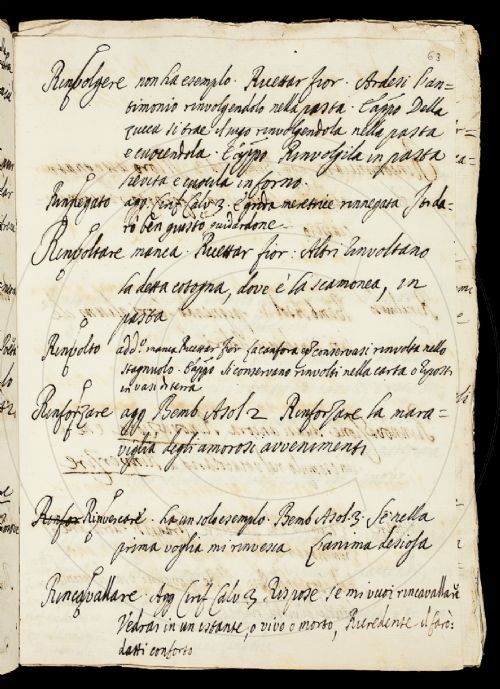 63
Rinvolgere non ha esempio. Ricettar fior. Ardesi l'an=
timonio rinvolgendolo nella pasta. E appo Della
zucca si trae il sugo rinvolgendola nella pasta
e cuocendola. E appo Rinvolgila in pasta
lievita e cuocila in forno.
Rinnegato agg. Cirif. Calv. 3. E grida meretrice rinnegata Io ti da=
rò ben giusto guidardone
Rinvoltare manca. Ricettar fior: Altri Involtano
la detta cotogna, dove è la scamonea, in
pasta
Rinvolto add. manca Ricettar fior La canfora conservasi rinvolta nello
stagnuolo. E appo si conservano rinvolti nella carta o riposti
in vasi di terra
Rinforzare agg Bemb Asol 2 Rinforzare la mara=
viglia degli amorosi avvenimenti
Rinfor Rinvescare ha un solo esempio. Bemb Asol. 3. Se nella
prima voglia mi rinvesca L'anima desiosa
Rincavallare Agg Cirif Calv 3 Rispose se mi vuoi rincavallare
Vedrai in un istante, o vivo o morto, Ricredente il farò:
datti conforto